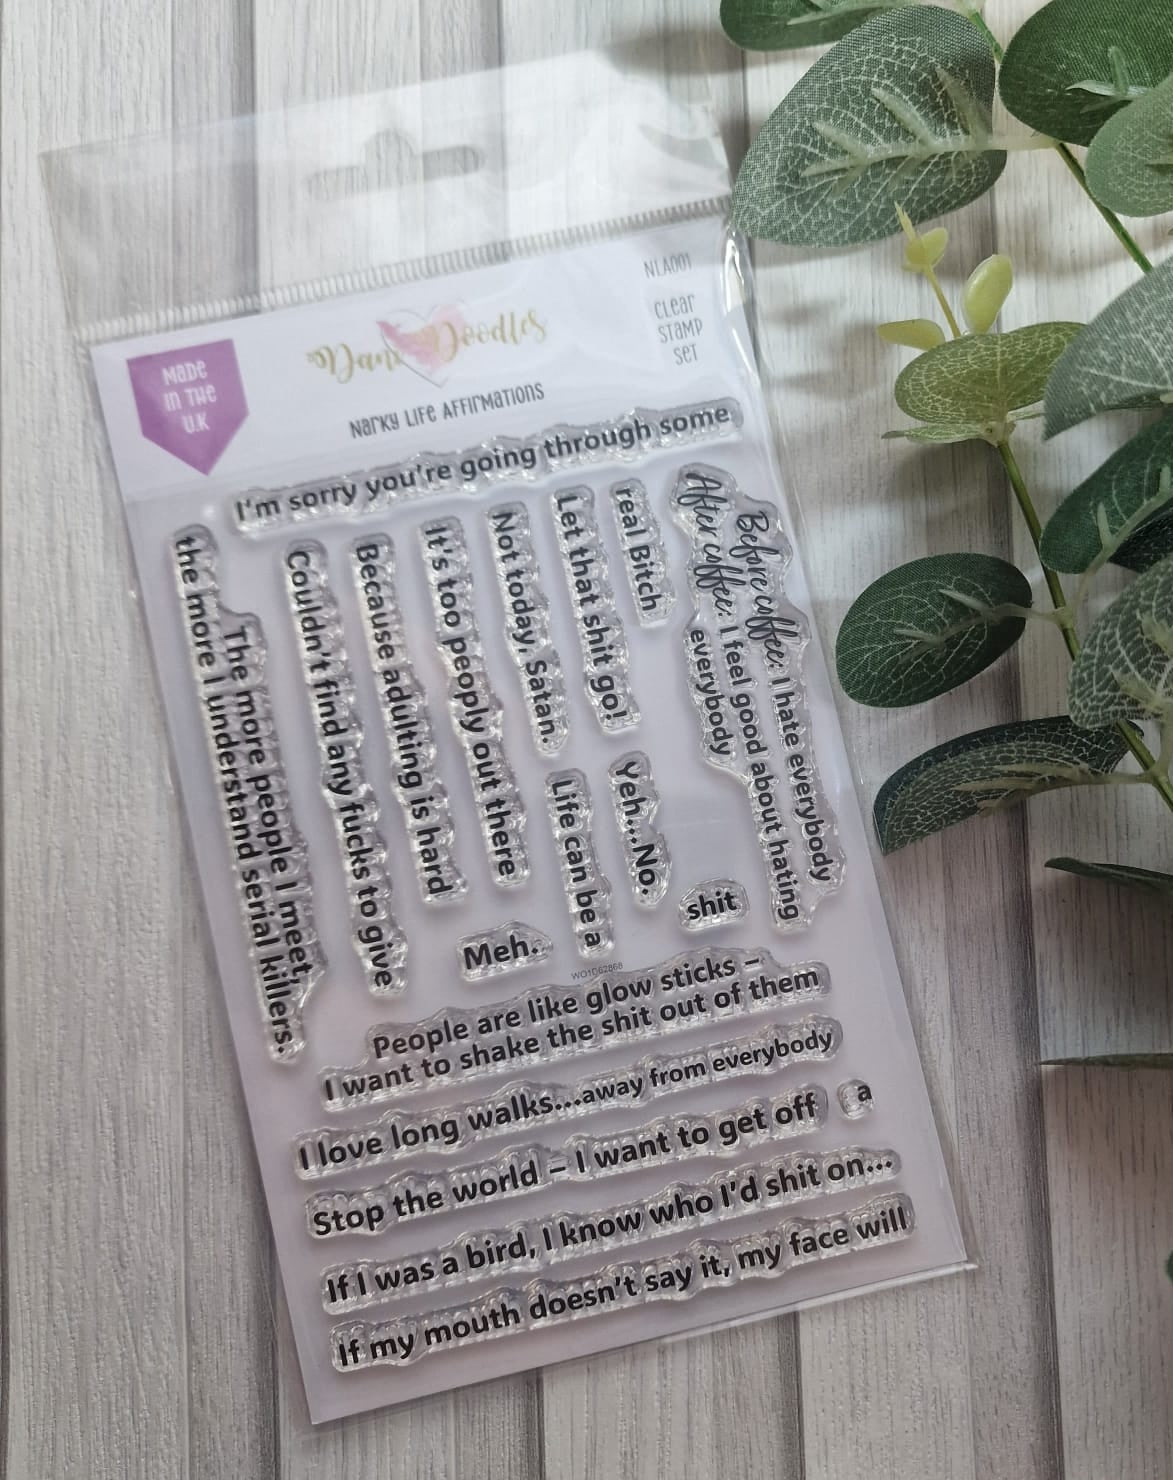 MADE
IN THE
U.K
Dani Doodles
NARKY LIFE AFFIRMATIONS
NLA001
CLEAR
STAMP
SET
I'm sorry you're going through some
The more people I meet,
the more I understand serial killers.
Couldn't find any fucks to give
Because adulting is hard
It's too peoply out there
Not today, Satan.
Let that shit go!
real Bitch
Before coffee: I hate everybody
After coffee: I feel good about hating
everybody
Life can be a
Yeh...No.
shit
Meh.
WO1062868
People are like glow sticks –
I want to shake the shit out of them
I love long walks...away from everybody
Stop the world – I want to get off
a
If I was a bird, I know who I'd shit on...
If my mouth doesn't say it, my face will